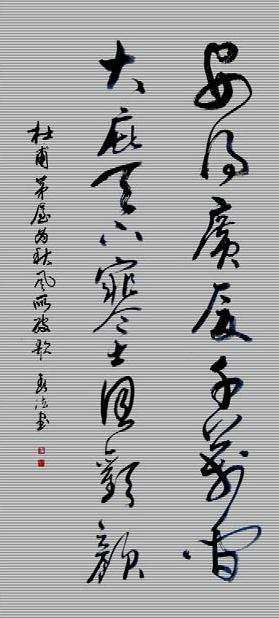 安得廣厦千萬間
大庇天下寒士俱歡顏
杜甫茅屋為秋風所破歌 書